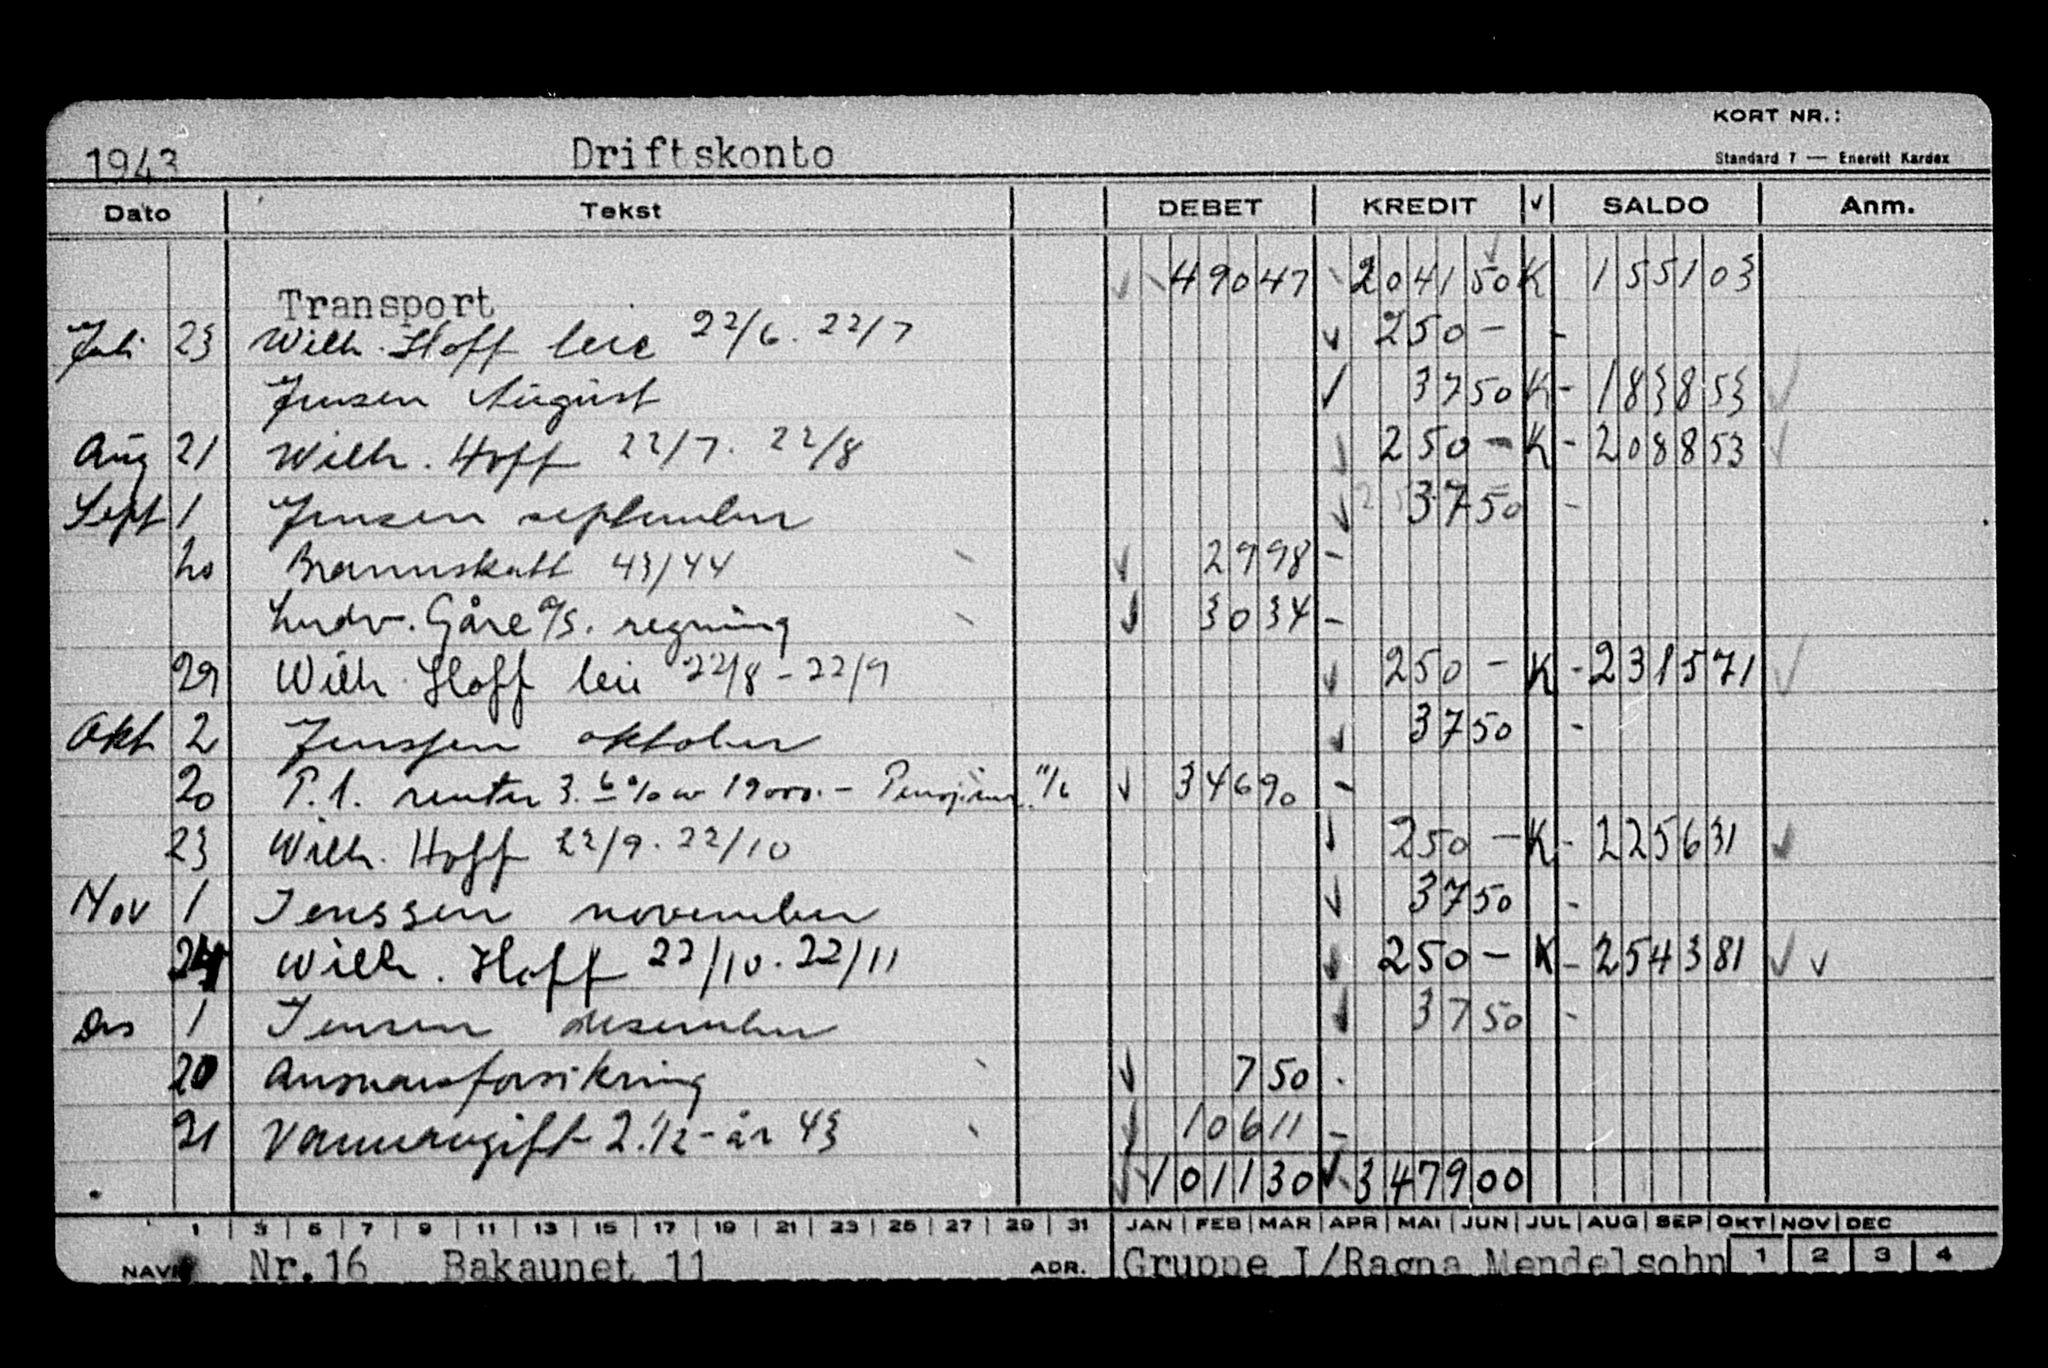 KORT NR.:
1943 Driftskonto
Standard 7 — Enerett Kardex
Dato Tekst DEBET KREDIT v SALDO Anm.
Transport 490 47 2041 50 K 1551 03
Juli 23 Wilh. Hoff leie 22/6. 22/7 250 -
Jensen August 37 50 K - 1838 53
Aug 21 Wilh. Hoff 22/7. 22/8 250 - K - 2088 53
Sept 1 Jensen september 37 50 -
20 Brannskatt 43/44 29 98 -
Ludv. Gåre a/s. regning 30 34 -
29 Wilh. Hoff leie 22/8 - 22/9 250 - K - 2315 71
Okt 2 Jenssen oktober 37 50 -
20 P.t. renter 3.6 % av 19000.- 11/6 346 90 -
23 Wilh. Hoff 22/9. 22/10 250 - K - 2256 31
Nov 1 Jenssen november 37 50 -
24 Wilh. Hoff 22/10. 22/11 250 - K - 2543 81
Des 1 Jensen desember 37 50 -
20 Ansvarsforsikring 7 50 -
21 Vannavgift 2. 1/2 - år 43 106 11 -
1011 30 3479 00
1 3 5 7 9 11 13 15 17 19 21 23 25 27 29 31 JAN FEB MAR APR MAI JUN JUL AUG SEP OKT NOV DEC
NAVN Nr.16 Bakaunet 11 ADR. Gruppe I/Ragna Mendelsohn 1 2 3 4